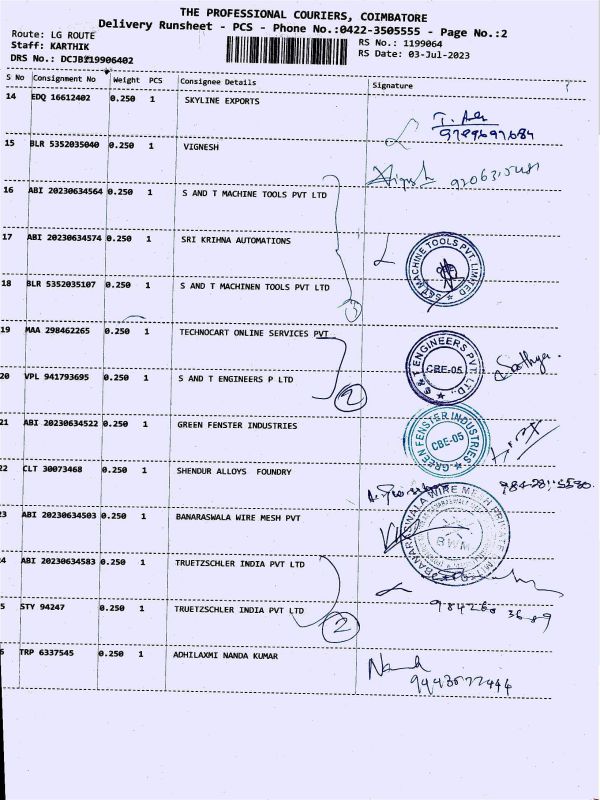 THE PROFESSIONAL COURIERS, COIMBATORE
Delivery Runsheet - PCS - Phone No.:0422-3505555 - Page No.:2
Route: LG ROUTE
RS No.: 1199064
Staff: KARTHIK
RS Date: 03-Jul-2023
DRS No.: DCJB119906402
S No Consignment No Weight PCS Consignee Details Signature
14 EDQ 16612402 0.250 1 SKYLINE EXPORTS
9789697684
15 BLR 5352035040 0.250 1 VIGNESH
Vignesh
16 ABI 20230634564 0.250 1 S AND T MACHINE TOOLS PVT LTD
17 ABI 20230634574 0.250 1 SRI KRIHNA AUTOMATIONS
S&T MACHINE TOOLS PVT LIMITED
18 BLR 5352035107 0.250 1 S AND T MACHINEN TOOLS PVT LTD
3
19 MAA 298462265 0.250 1 TECHNOCART ONLINE SERVICES PVT
S & T ENGINEERS PVT. LTD.,
CBE-05
Sathya.
20 VPL 941793695 0.250 1 S AND T ENGINEERS P LTD
2
21 ABI 20230634522 0.250 1 GREEN FENSTER INDUSTRIES
GREEN FENSTER INDUSTRIES
CBE-05
22 CLT 30073468 0.250 1 SHENDUR ALLOYS FOUNDRY
23 ABI 20230634503 0.250 1 BANARASWALA WIRE MESH PVT
BANARASWALA WIRE MESH PRIVATE LIMITED
BWM
4 ABI 20230634583 0.250 1 TRUETZSCHLER INDIA PVT LTD
5 STY 94247 0.250 1 TRUETZSCHLER INDIA PVT LTD
2
6 TRP 6337545 0.250 1 ADHILAXMI NANDA KUMAR